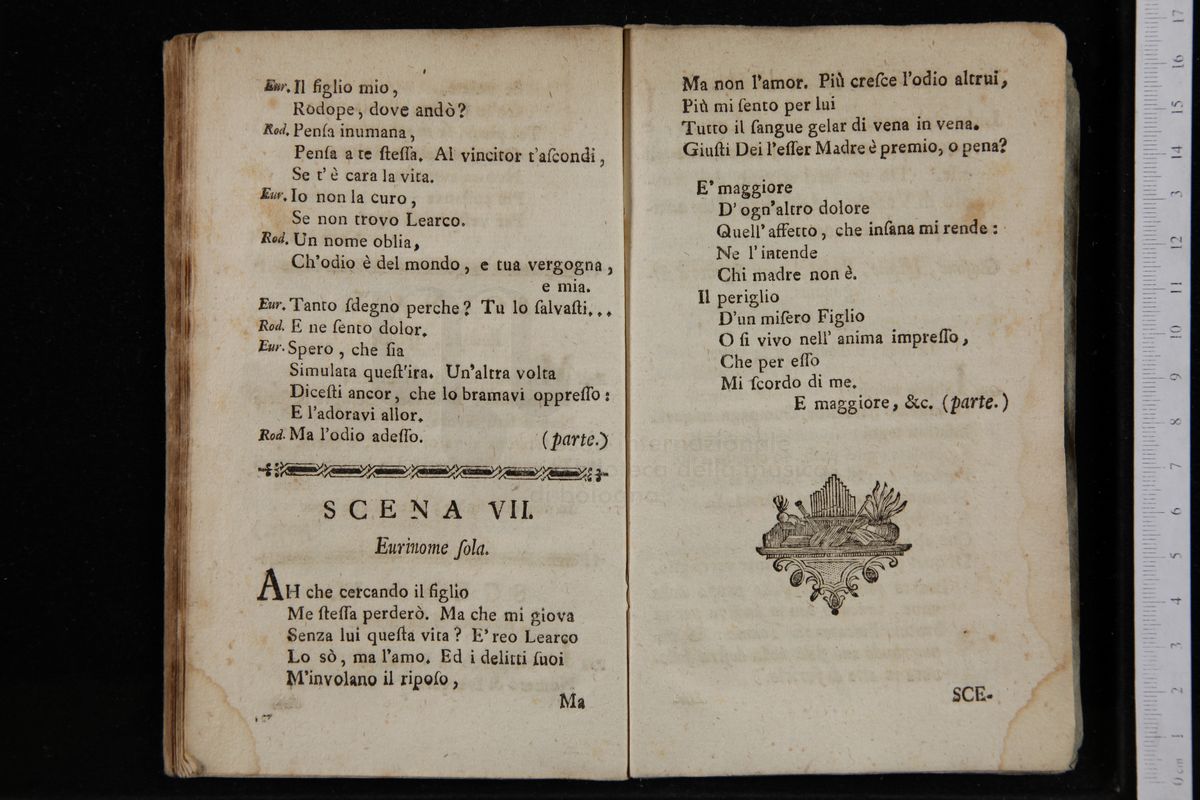 Eur. Il figlio mio,
Rodope, dove andò?
Rod. Penſa inumana,
Penſa a te ſteſſa. Al vincitor t'aſcondi,
Se t'è cara la vita.
Eur. Io non la curo,
Se non trovo Learco.
Rod. Un nome oblia,
Ch'odio è del mondo, e tua vergogna,
e mia.
Eur. Tanto ſdegno perche? Tu lo ſalvaſti...
Rod. E ne ſento dolor.
Eur. Spero, che ſia
Simulata queſt'ira. Un'altra volta
Diceſti ancor, che lo bramavi oppreſſo:
E l'adoravi allor.
Rod. Ma l'odio adeſſo. (parte.)
SCENA VII.
Eurinome ſola.
AH che cercando il figlio
Me ſteſſa perderò. Ma che mi giova
Senza lui queſta vita? E' reo Learco
Lo sò, ma l'amo. Ed i delitti ſuoi
M'involano il ripoſo,
Ma
Ma non l'amor. Più creſce l'odio altrui,
Più mi ſento per lui
Tutto il ſangue gelar di vena in vena.
Giuſti Dei l'eſſer Madre è premio, o pena?
E' maggiore
D' ogn'altro dolore
Quell' affetto, che inſana mi rende:
Ne l'intende
Chi madre non è.
Il periglio
D'un miſero Figlio
O ſi vivo nell' anima impreſſo,
Che per eſſo
Mi ſcordo di me.
E maggiore, &c. (parte.)
SCE-
internazionale
della musica
di bologna
0 cm 1 2 3 4 5 6 7 8 9 10 11 12 13 14 15 16 17